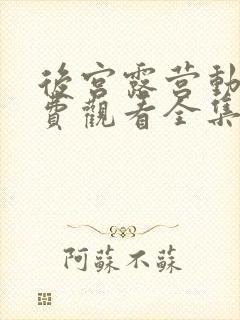 後宮露营動
費觀看全集
阿蘇不蘇